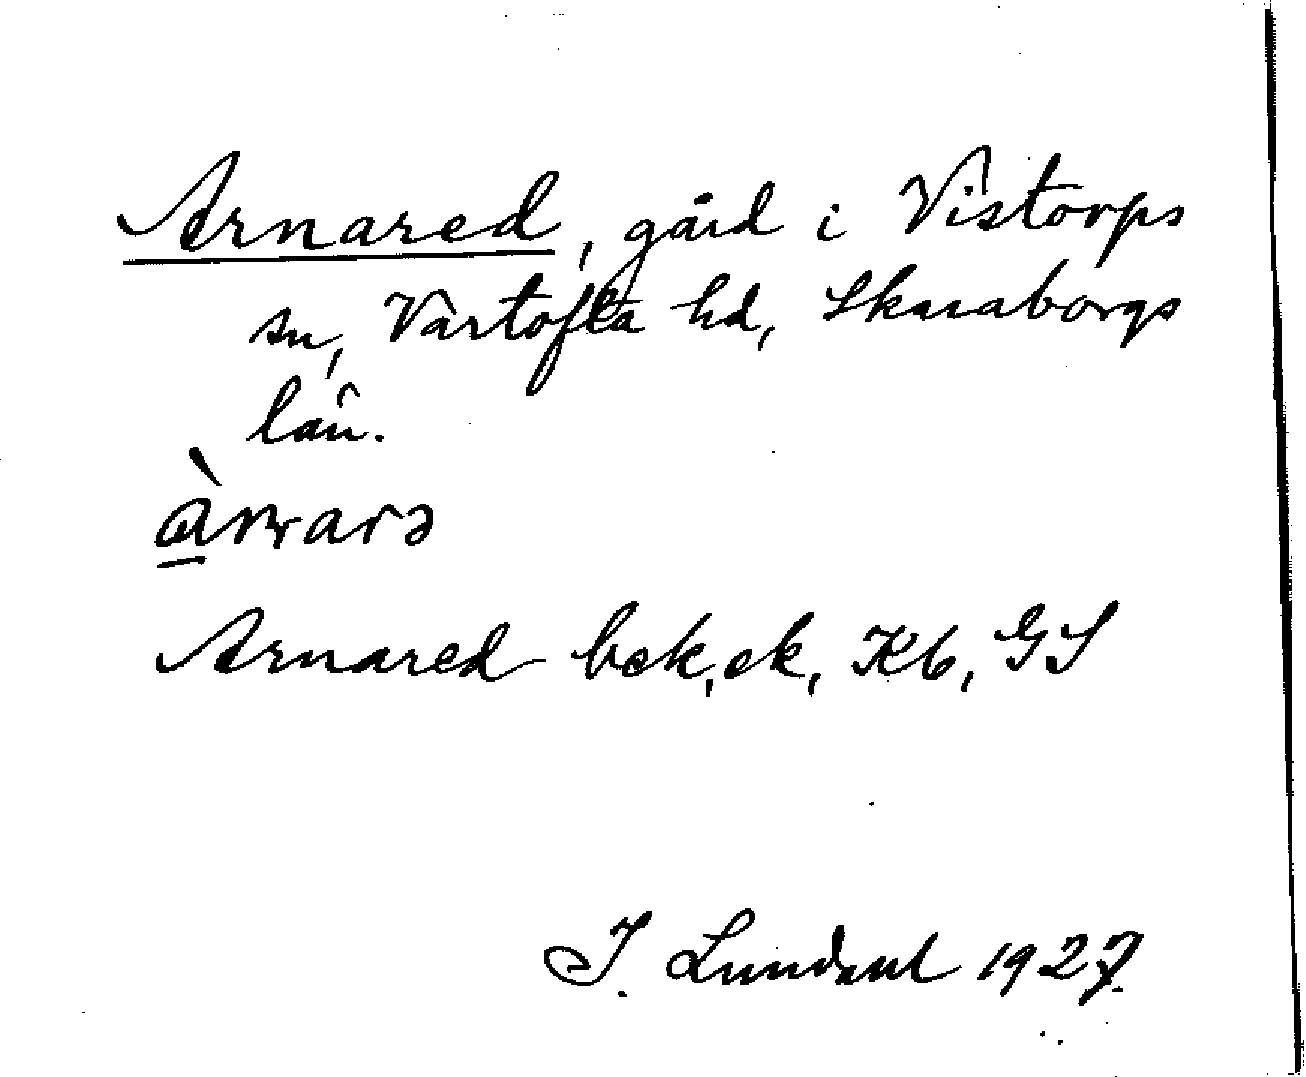 Arnared, gård i Vistorps
sn, Vartofta hd, Skaraborgs
län.
Arnared bek, ek, Kb, GS
J. Lundahl 1927.